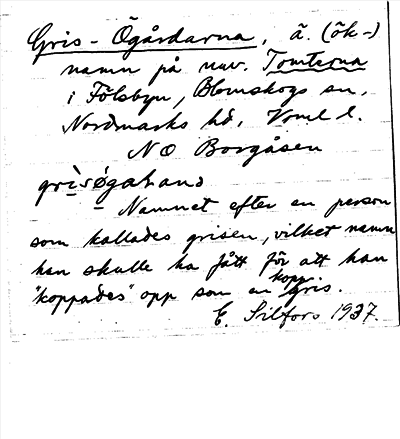 Gris-Ögårdarna, ä. (ök-)
namn på nuv. Tomterna
i Fölsbyn, Blomskogs sn,
Nordmarks hd, Vrml l.
NO Borgåsen
grìsøgaɫana
- Namnet efter en person
som kallades grisen, vilket namn
han skulle ha fått för att han
"koppades" opp som en koppgris.
E. Silfors 1937.